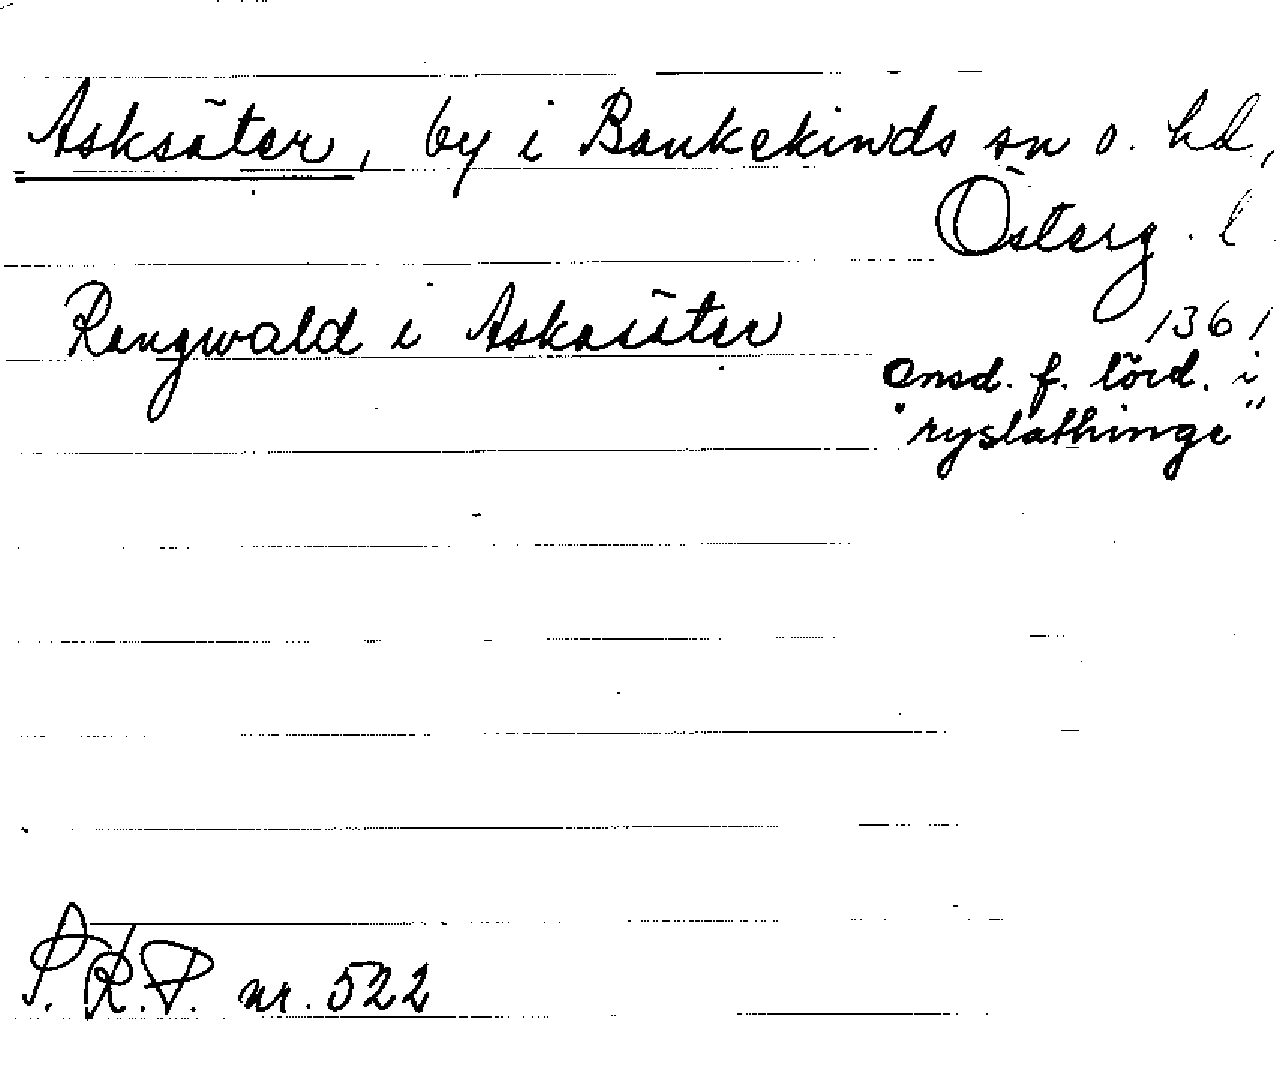 Asksäter, by i Bankekinds sn o. hd,
Österg. l
Rangwald i Askasäter
1361
onsd. f. lörd. i
"ryslathinge"
S.R.P. nr. 522